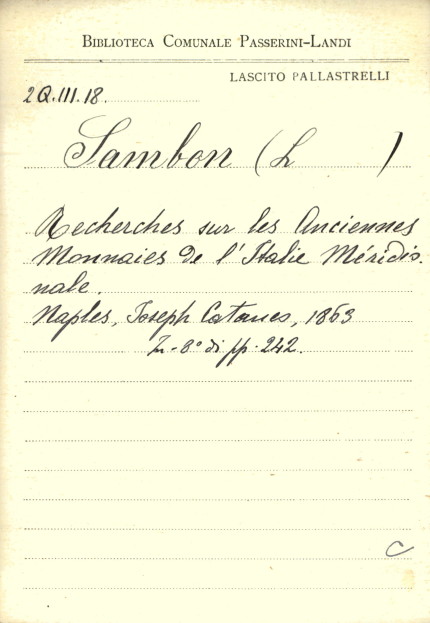 BIBLIOTECA COMUNALE PASSERINI-LANDI
LASCITO PALLASTRELLI
2Q.III.18.
Sambon (L )
Recherches sur les Anciennes
Monnaies de l'Italie Méridio-
nale.
Naples, Joseph Cataneo, 1863
In-8° di pp. 242.
C